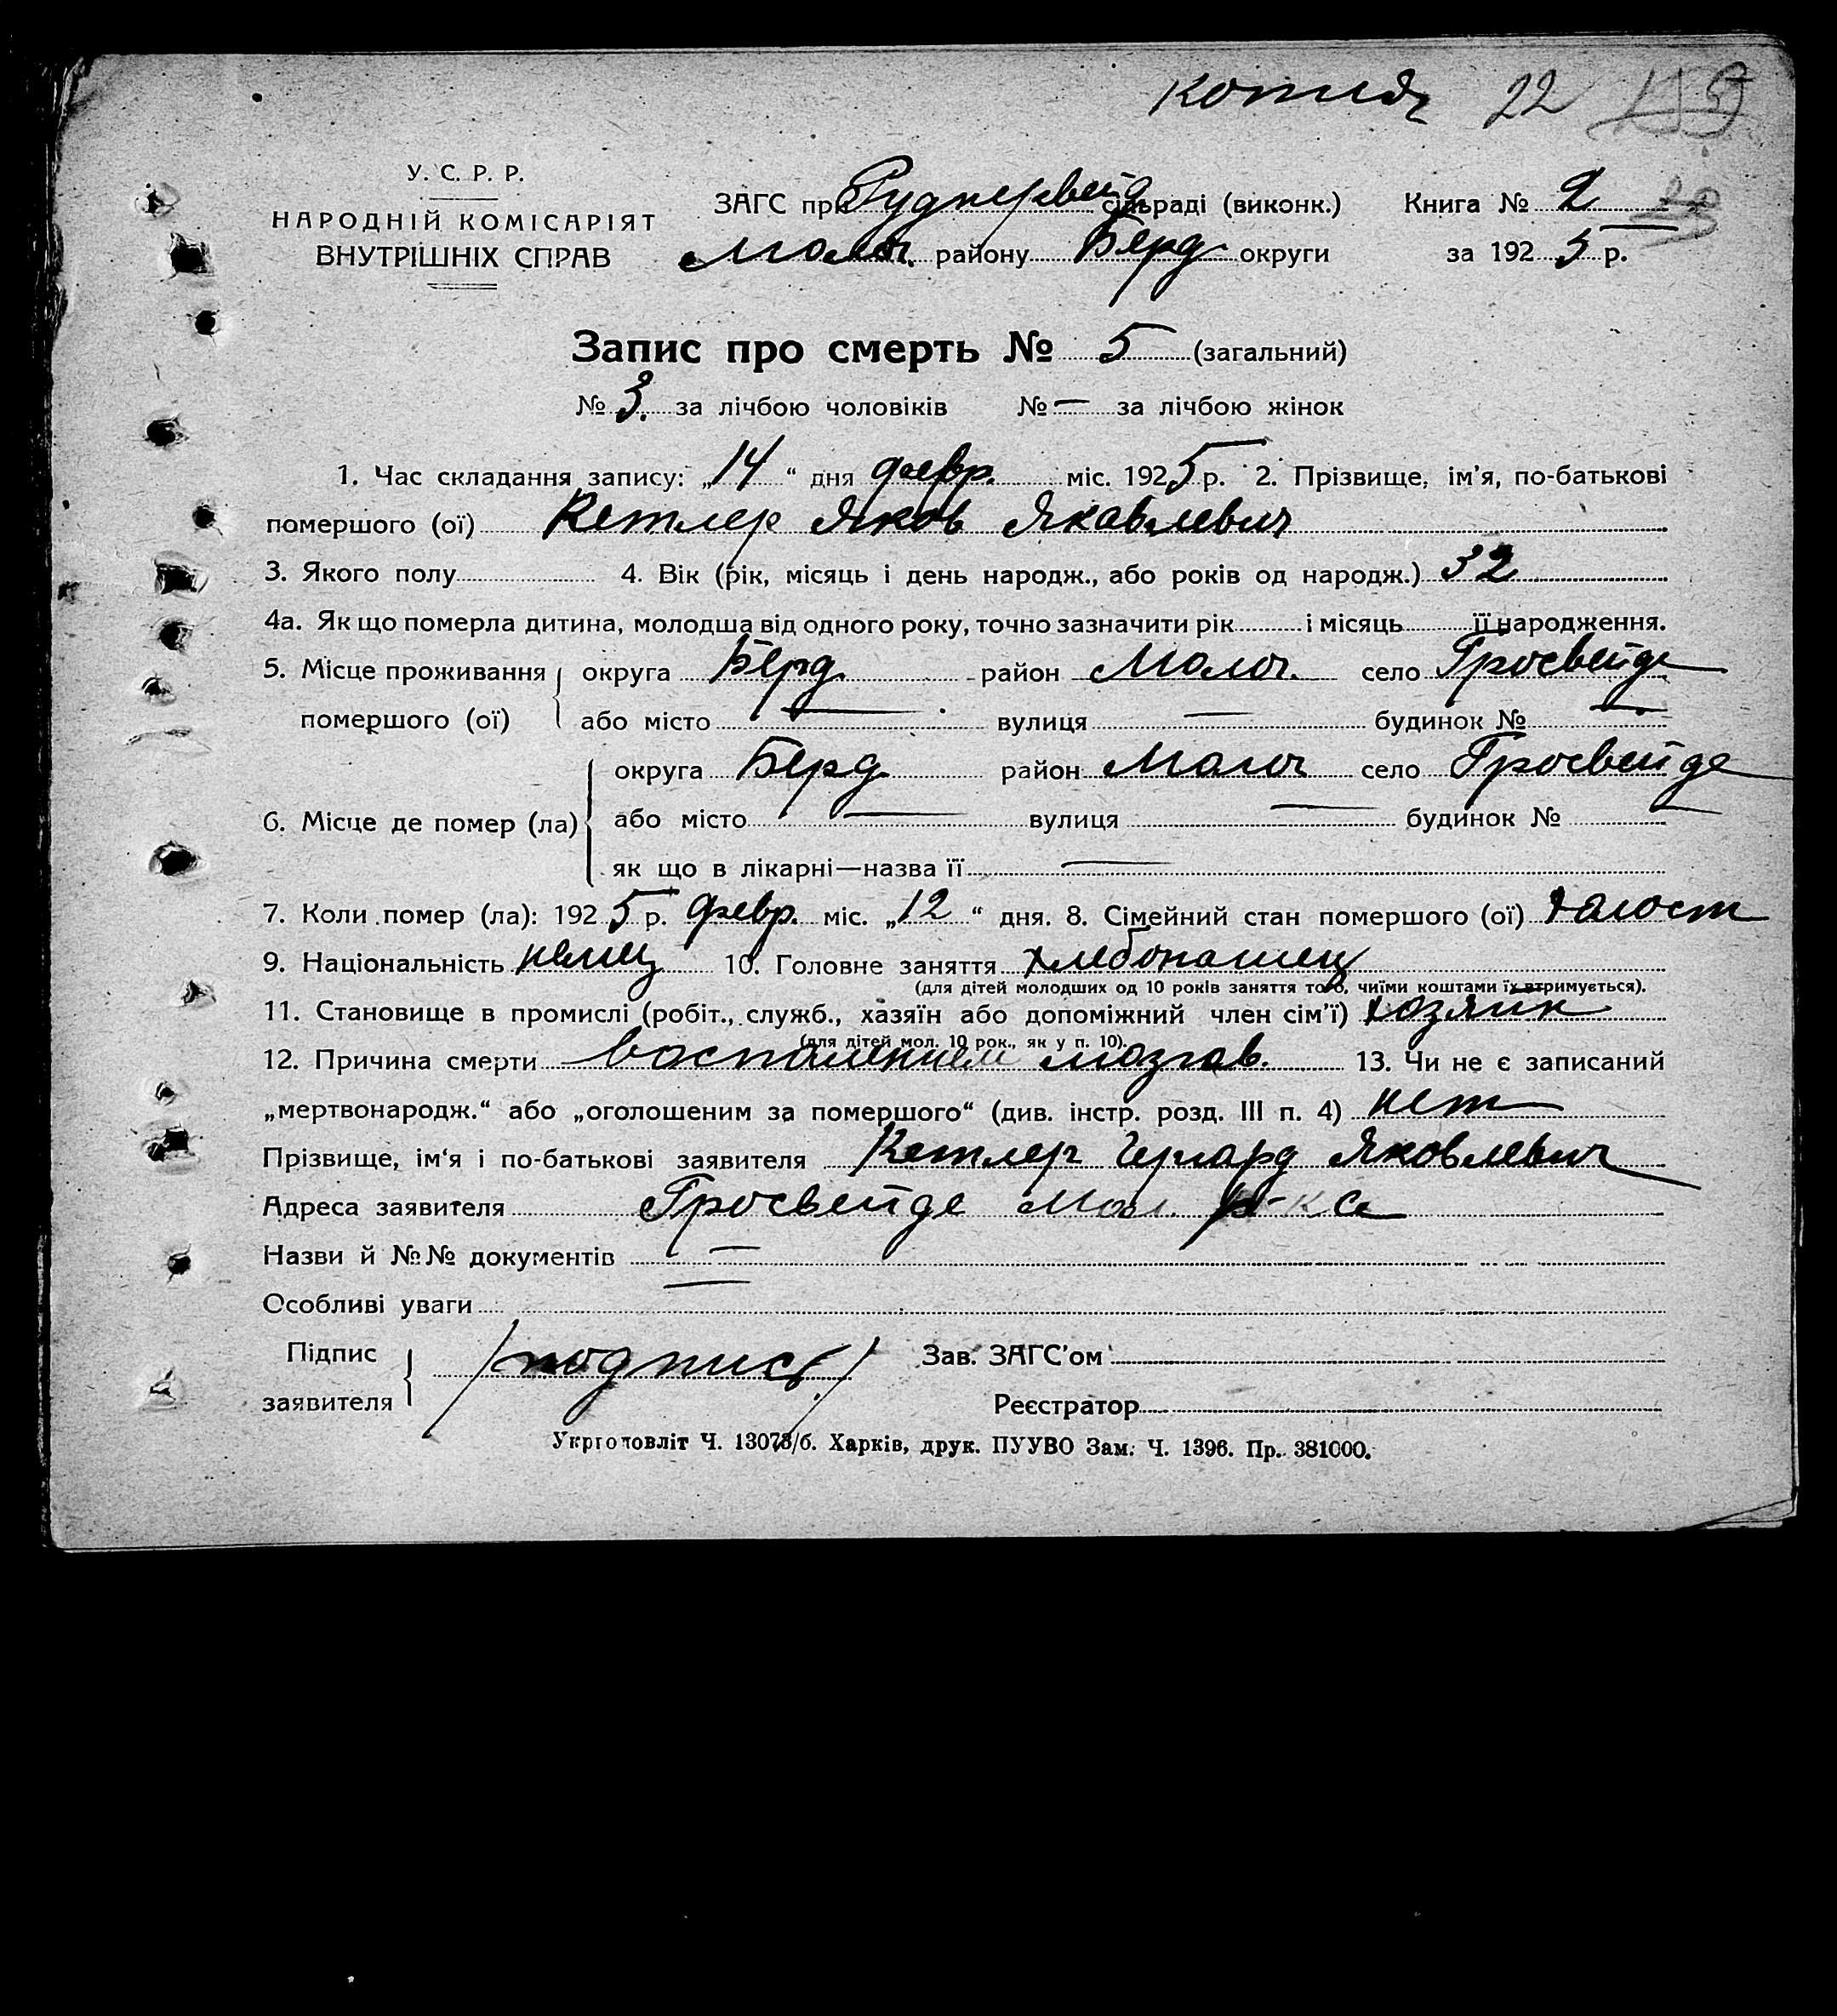 копия 22
У. С. Р. Р.
НАРОДНІЙ КОМІСАРІЯТ
ВНУТРІШНІХ СПРАВ
ЗАГС при Руднервейд сільраді (виконк.)
Молоч. району Берд. округи
Книга № 2
за 1925 р.
Запис про смерть № 5 (загальний)
№ 3. за лічбою чоловіків № — за лічбою жінок
1. Час складання запису: „14“ дня февр. міс. 1925 р. 2. Прізвище, ім'я, по-батькові
помершого (ої) Кетлер Яков Якавлевич
3. Якого полу 4. Вік (рік, місяць і день народж., або років од народж.) 32
4а. Як що померла дитина, молодша від одного року, точно зазначити рік і місяць її народження.
5. Місце проживання помершого (ої) округа Берд. район Молоч. село Гросвейде
або місто — вулиця — будинок № —
6. Місце де помер (ла) округа Берд район Молоч село Гросвейде
або місто — вулиця — будинок № —
як що в лікарні—назва її —
7. Коли помер (ла): 1925 р. февр. міс. „12“ дня. 8. Сімейний стан помершого (ої) халост
9. Національність немец 10. Головне заняття хлебопашец
(для дітей молодших од 10 років заняття того, чиїми коштами їх втримується).
11. Становище в промислі (робіт., служб., хазяїн або допоміжний член сім'ї) хозяин
(для дітей мол. 10 рок., як у п. 10).
12. Причина смерти воспалением мозгов. 13. Чи не є записаний
„мертвонародж.“ або „оголошеним за помершого“ (див. інстр. розд. III п. 4) нет
Прізвище, ім'я і по-батькові заявителя Кетлер Гергард Яковлевич
Адреса заявителя Гросвейде Мол. р-ка
Назви й №№ документів —
Особливі уваги —
Підпис заявителя /подпись/ Зав. ЗАГС'ом
Реєстратор
Укрголовліт Ч. 13073/б. Харків, друк. ПУУВО Зам. Ч. 1396. Пр. 381000.